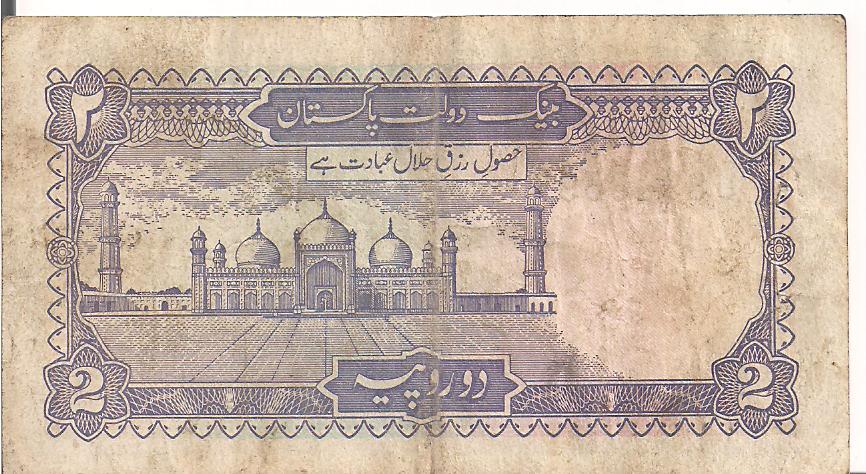 ۲ بینک دولت پاکستان ۲
حصولِ رزقِ حلال عبادت ہے
2 دو روپیہ 2